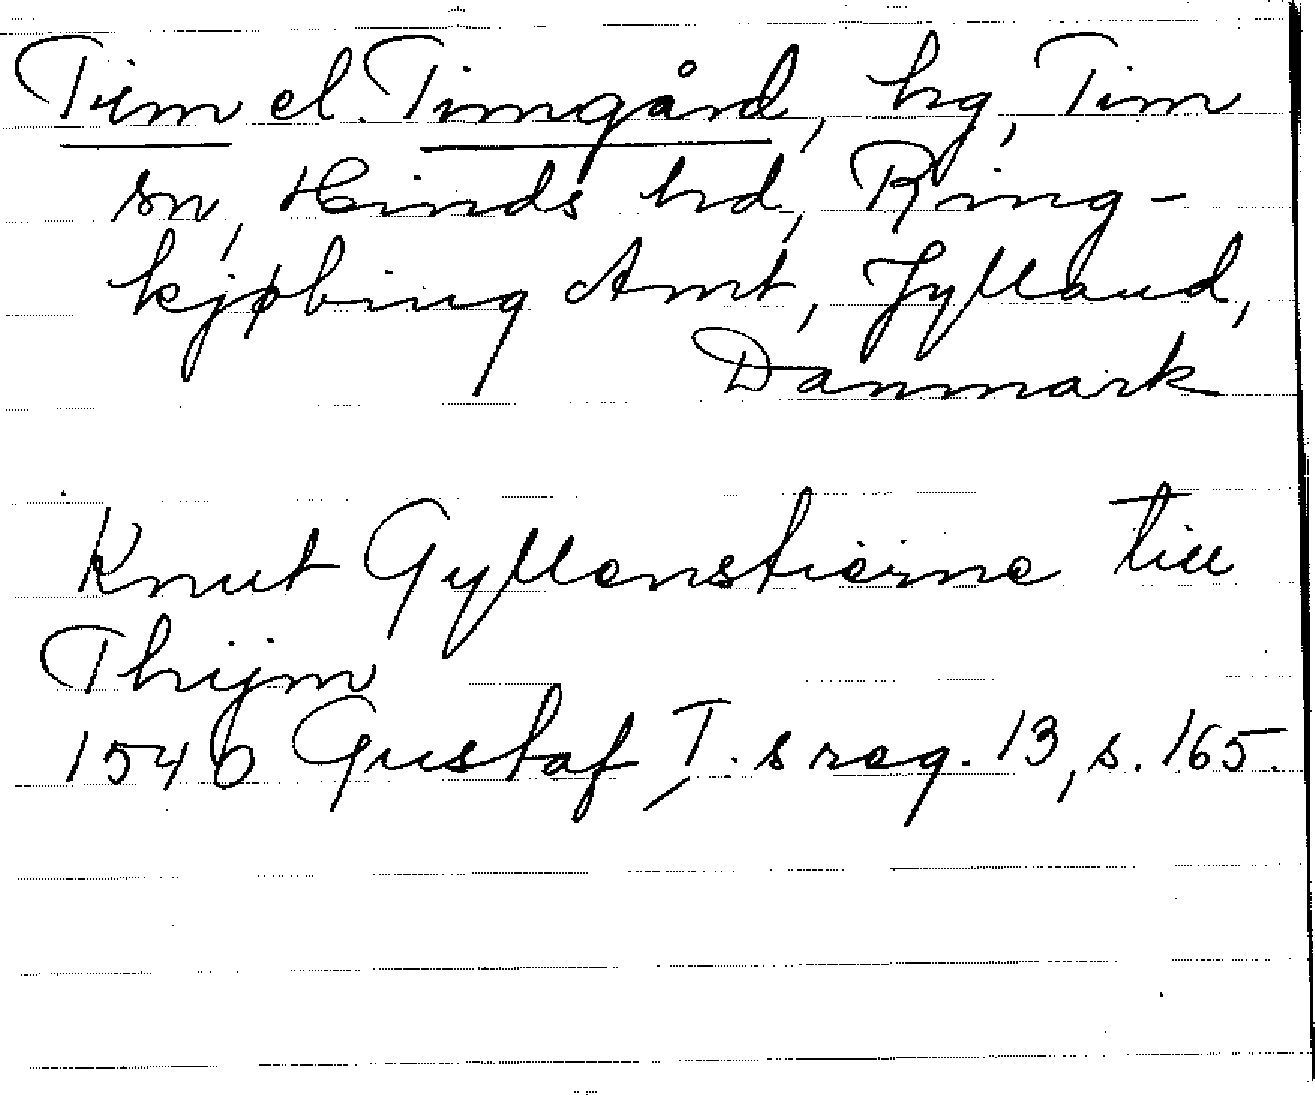 Tim el. Timgård, hg, Tim
sn, Hinds hd, Ring-
kjøbing Amt, Jylland,
Danmark
Knut Gyllenstierne till
Thijm
1540 Gustaf I. s reg. 13, s. 165.